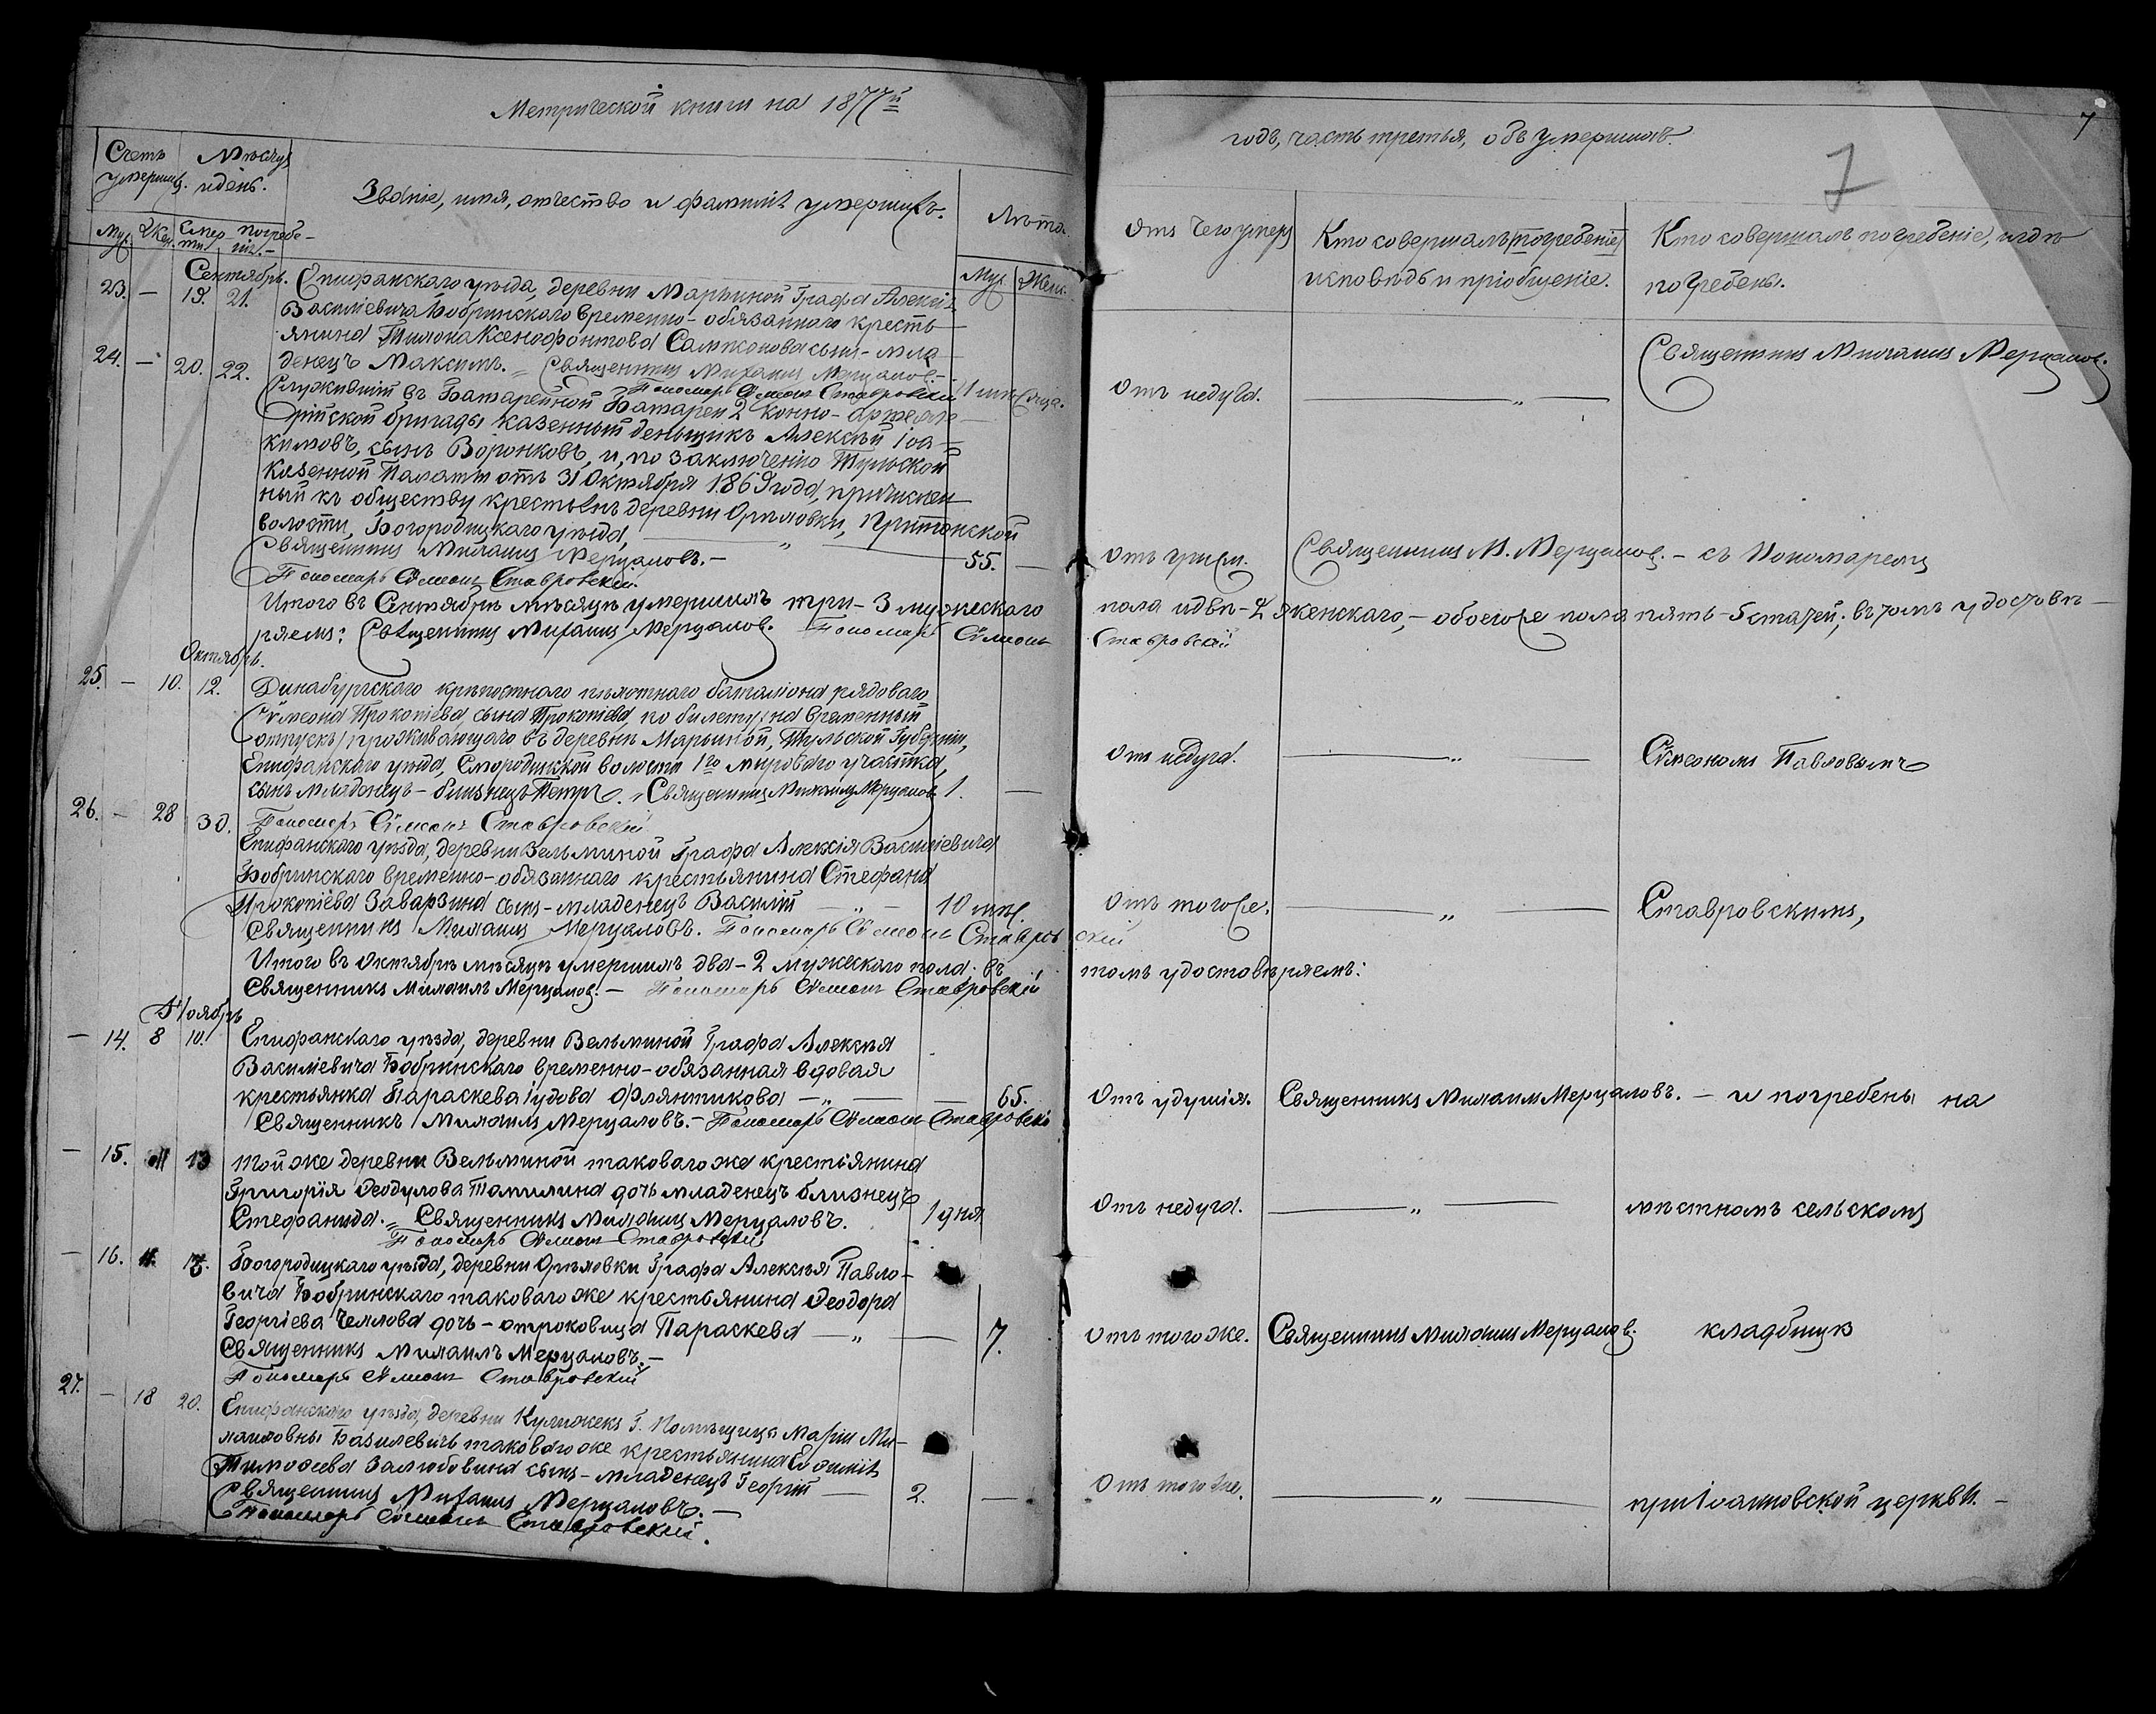 Метрической книги на 1877й
Счетъ умершихъ.
Мѣсяцъ и день.
Званіе, имя, отчество и фамилія умершихъ.
Лѣта.
Муж. Жен. Смерти. Погребенія.
Муж. Жен.
Сентябрь.
23. — 19. 21. Епифанскаго уѣзда, деревни Марьиной Графа Алексія
Василіевича Бобринскаго временно-обязаннаго кресть-
янина Тихона Ксенофонтова сынъ - мла-
денецъ Максимъ. „ Священникъ Михаилъ Мерцаловъ. —
Пономарь Сѵмеонъ Ставровскій
24. — 20. 22. Служившій въ Батарейной Батареи 2 Конно-
рійской бригады казенный деньщикъ Алексѣй Іоа-
кимовъ, сынъ Воронковъ, и, по заключенію Тульской
Казенной Палаты отъ 31 Октября 1869 года, причислен-
ный къ обществу крестьянъ деревни Орловки,
волости, Богородицкаго уѣзда, — „ — 55. —
Священникъ Михаилъ Мерцаловъ. —
Пономарь Сѵмеонъ Ставровскій.
Итого въ Сентябрѣ мѣсяцѣ умершихъ три - 3 мужескаго
ряемъ: Священникъ Михаилъ Мерцаловъ. Пономарь Сѵмеонъ
Октябрь.
25. — 10. 12. Динабургскаго крѣпостнаго пѣхотнаго баталіона рядоваго
Сѵмеона Прокопіева сына Прокопіева, по билету на временный
отпускъ проживающаго въ деревнѣ Марьиной, Тульской Губерніи,
Епифанскаго уѣзда, Смородинской волости 1го мироваго участка,
сынъ младенецъ - близнецъ Петръ. „ Священникъ Михаилъ Мерцаловъ 1. —
Пономарь Сѵмеонъ Ставровскій
26. — 28 30. Епифанскаго уѣзда, деревни Вельминой Графа Алексія Василіевича
Бобринскаго временно-обязаннаго крестьянина Стефана
Прокопіева Заварзина сынъ - младенецъ Василій — „ — 10 мѣс.
Священникъ Михаилъ Мерцаловъ. Пономарь Сѵмеонъ Ставров
Итого въ Октябрѣ мѣсяцѣ умершихъ два - 2 мужескаго пола; въ
Священникъ Михаилъ Мерцаловъ. — Пономарь Сѵмеонъ Ставровскій
Ноябрь
— 14. 8 10. Епифанскаго уѣзда, деревни Вельминой Графа Алексѣя
Василіевича Бобринскаго временно-обязанная вдовая
крестьянка Параскева Іудова Флянтикова — „ — — 65.
Священникъ Михаилъ Мерцаловъ. — Пономарь Сѵмеонъ Ставровскій
— 15. 11 13 той же деревни Вельминой таковаго же крестіянина
Григорія Ѳеодулова Томилина дочь младенецъ близнецъ
Стефанида. „ Священникъ Михаилъ Мерцаловъ. 1 дня
Пономарь Сѵмеонъ Ставровскій
— 16. Богородицкаго уѣзда, деревни Орловки Графа Алексѣя Павло-
вича Бобринскаго таковаго же крестьянина Ѳеодора
Георгіева дочь - отроковица Параскева — „ — 7.
Священникъ Михаилъ Мерцаловъ. —
Пономарь Сѵмеонъ Ставровскій
27. — 18 20. Епифанскаго уѣзда, деревни Г. Помѣщицы Маріи Ми-
хаиловны Базилевичъ таковаго же крестьянина Евфимія
Тимоѳеева Залюбовина сынъ - младенецъ Георгій — 2. —
Священникъ Михаилъ Мерцаловъ. —
Пономарь Сѵмеонъ Ставровскій.
7
годъ, часть третья, объ умершихъ.
7
Отъ чего умеръ
Кто совершалъ погребеніе
исповѣдь и пріобщеніе.
Кто совершалъ погребеніе, и гдѣ
погребены.
Отъ недуга. — „ — Священникъ Михаилъ Мерцаловъ.
Отъ грыжи. Священникъ М. Мерцаловъ. — съ Пономаремъ
пола и двѣ - 2 женскаго, — обоего же пола пять - 5 статей; въ томъ удостовѣ-
Ставровскій
Отъ недуга. — „ — Сѵмеономъ Павловымъ
Отъ того же. — „ — Ставровскимъ,
скій
томъ удостовѣряемъ:
Отъ удушія. Священникъ Михаилъ Мерцаловъ. — и погребены на
Отъ недуга. — „ — мѣстномъ сельскомъ
Отъ того же. Священникъ Михаилъ Мерцаловъ. кладбищѣ
Отъ того же. — „ — при Іоанновской церкви. —